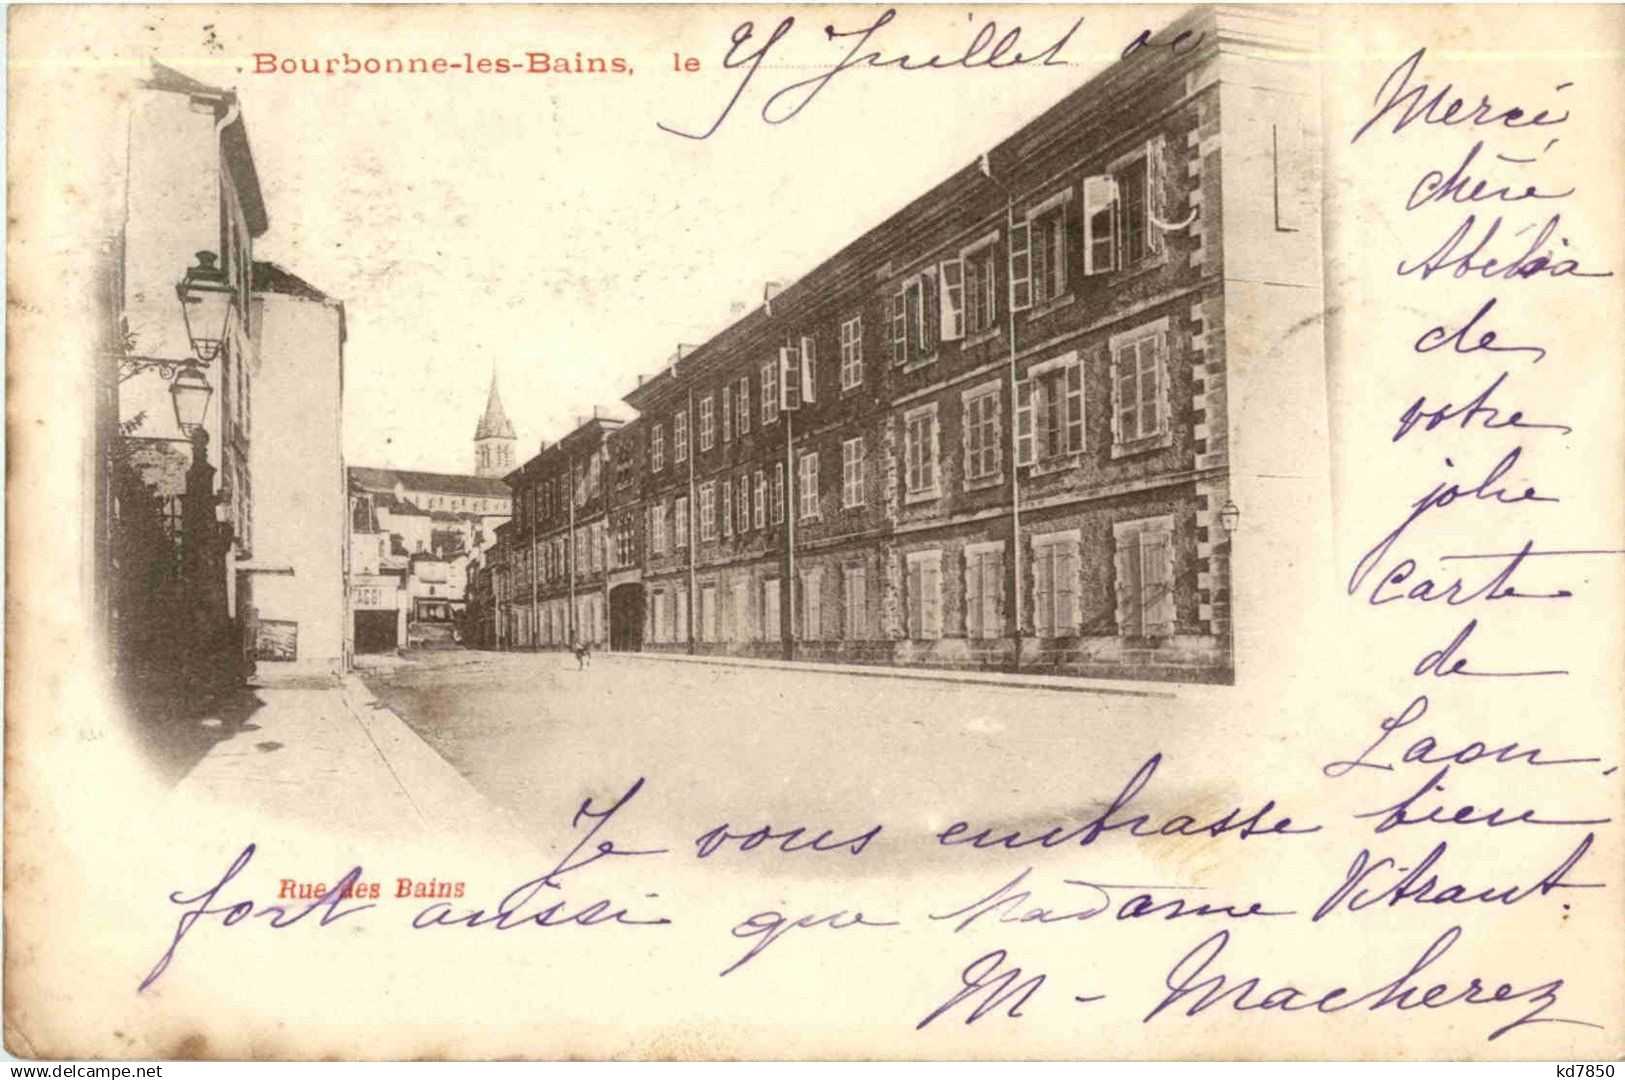 Bourbonne-les-Bains, le Juillet 00
Merci
chère
Abélia
de
votre
jolie
carte
de
Laon.
Je vous embrasse bien
fort aussi que Madame Vitrant.
M - Macherez
Rue des Bains
kd7850